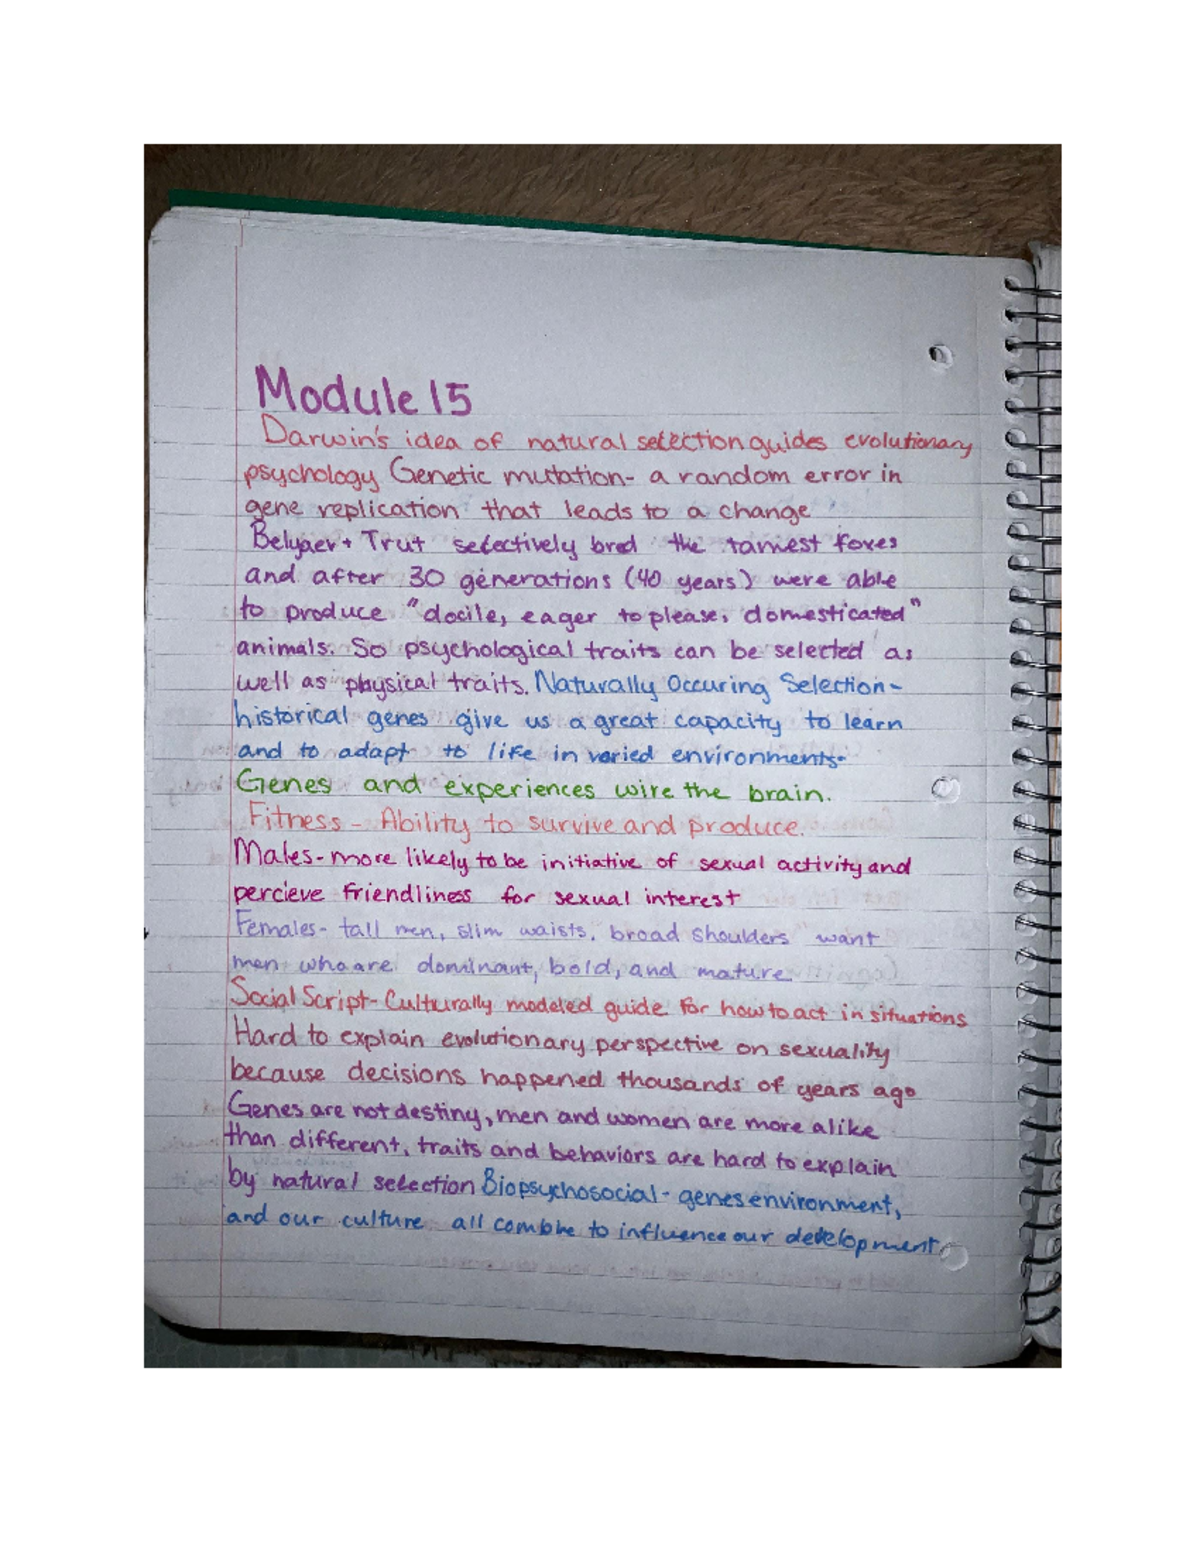 Module 15
Darwin's idea of natural selection guides evolutionary
psychology Genetic mutation- a random error in
gene replication that leads to a change
Belyaev + Trut selectively bred the tamest foxes
and after 30 generations (40 years) were able
to produce "docile, eager to please, domesticated"
animals. So psychological traits can be selected as
well as physical traits. Naturally Occuring Selection-
historical genes give us a great capacity to learn
and to adapt to life in varied environments-
Genes and experiences wire the brain.
Fitness - Ability to survive and produce.
Males-more likely to be initiative of sexual activity and
percieve friendliness for sexual interest
Females- tall men, slim waists, broad shoulders want
men who are dominant, bold, and mature
Social Script-Culturally modeled guide for how to act in situations
Hard to explain evolutionary perspective on sexuality
because decisions happened thousands of years ago
Genes are not destiny, men and women are more alike
than different, traits and behaviors are hard to explain
by natural selection Biopsychosocial- genes environment,
and our culture all combine to influence our development